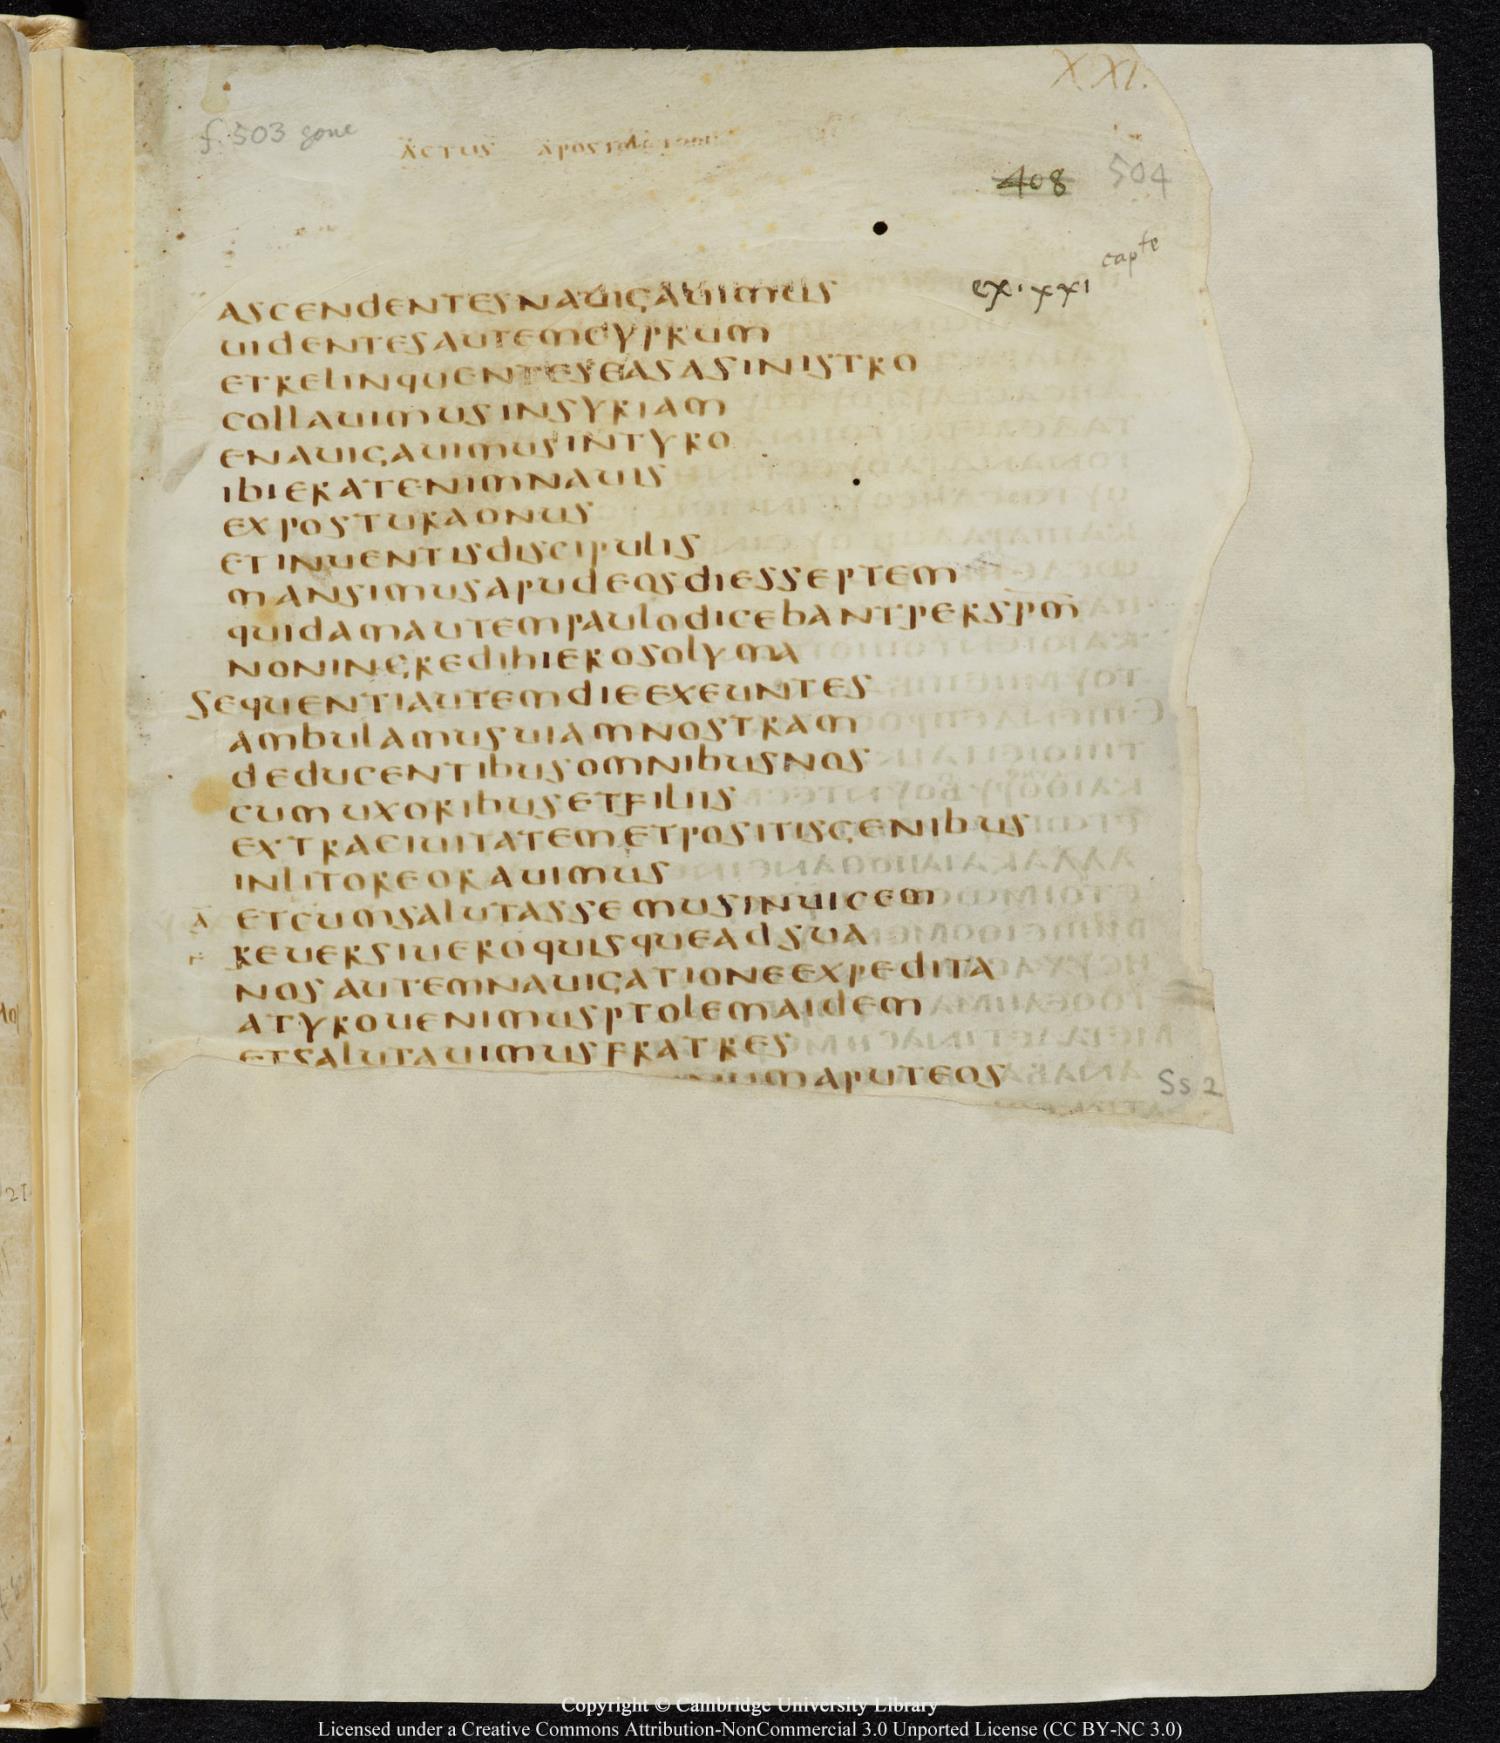 XXI.
f. 503 gone
ACTUS APOSTOLORUM
408 504
capte
ex · xxi
ASCENDENTESNAUIGAUIMUS
UIDENTESAUTEMCYPRUM
ETRELINQUENTESEASASINISTRO
COLLAUIMUSINSYRIAM
ENAUIGAUIMUSINTYRO
IBIERATENIMNAUIS
EXPOSTURAONUS
ETINUENTISDISCIPULIS
MANSIMUSAPUDEOSDIESSEPTEM
QUIDAMAUTEMPAULODICEBANTPERSPM̅
NONINGREDIHIEROSOLYMA
SEQUENTIAUTEMDIEEXEUNTES
AMBULAMUSUIAMNOSTRAM
DEDUCENTIBUSOMNIBUSNOS
CUMUXORIBUSETFILIIS
EXTRACIUITATEMETPOSITISGENIBUS
INLITOREORAUIMUS
ETCUMSALUTASSEMUSINUICEM
REUERSIUEROQUISQUEADSUA
NOSAUTEMNAUIGATIONEEXPEDITA
ATYROUENIMUSPTOLEMAIDEM
ETSALUTAUIMUSFRATRES
UMAPUTEOS
Ss 2
Copyright © Cambridge University Library
Licensed under a Creative Commons Attribution-NonCommercial 3.0 Unported License (CC BY-NC 3.0)